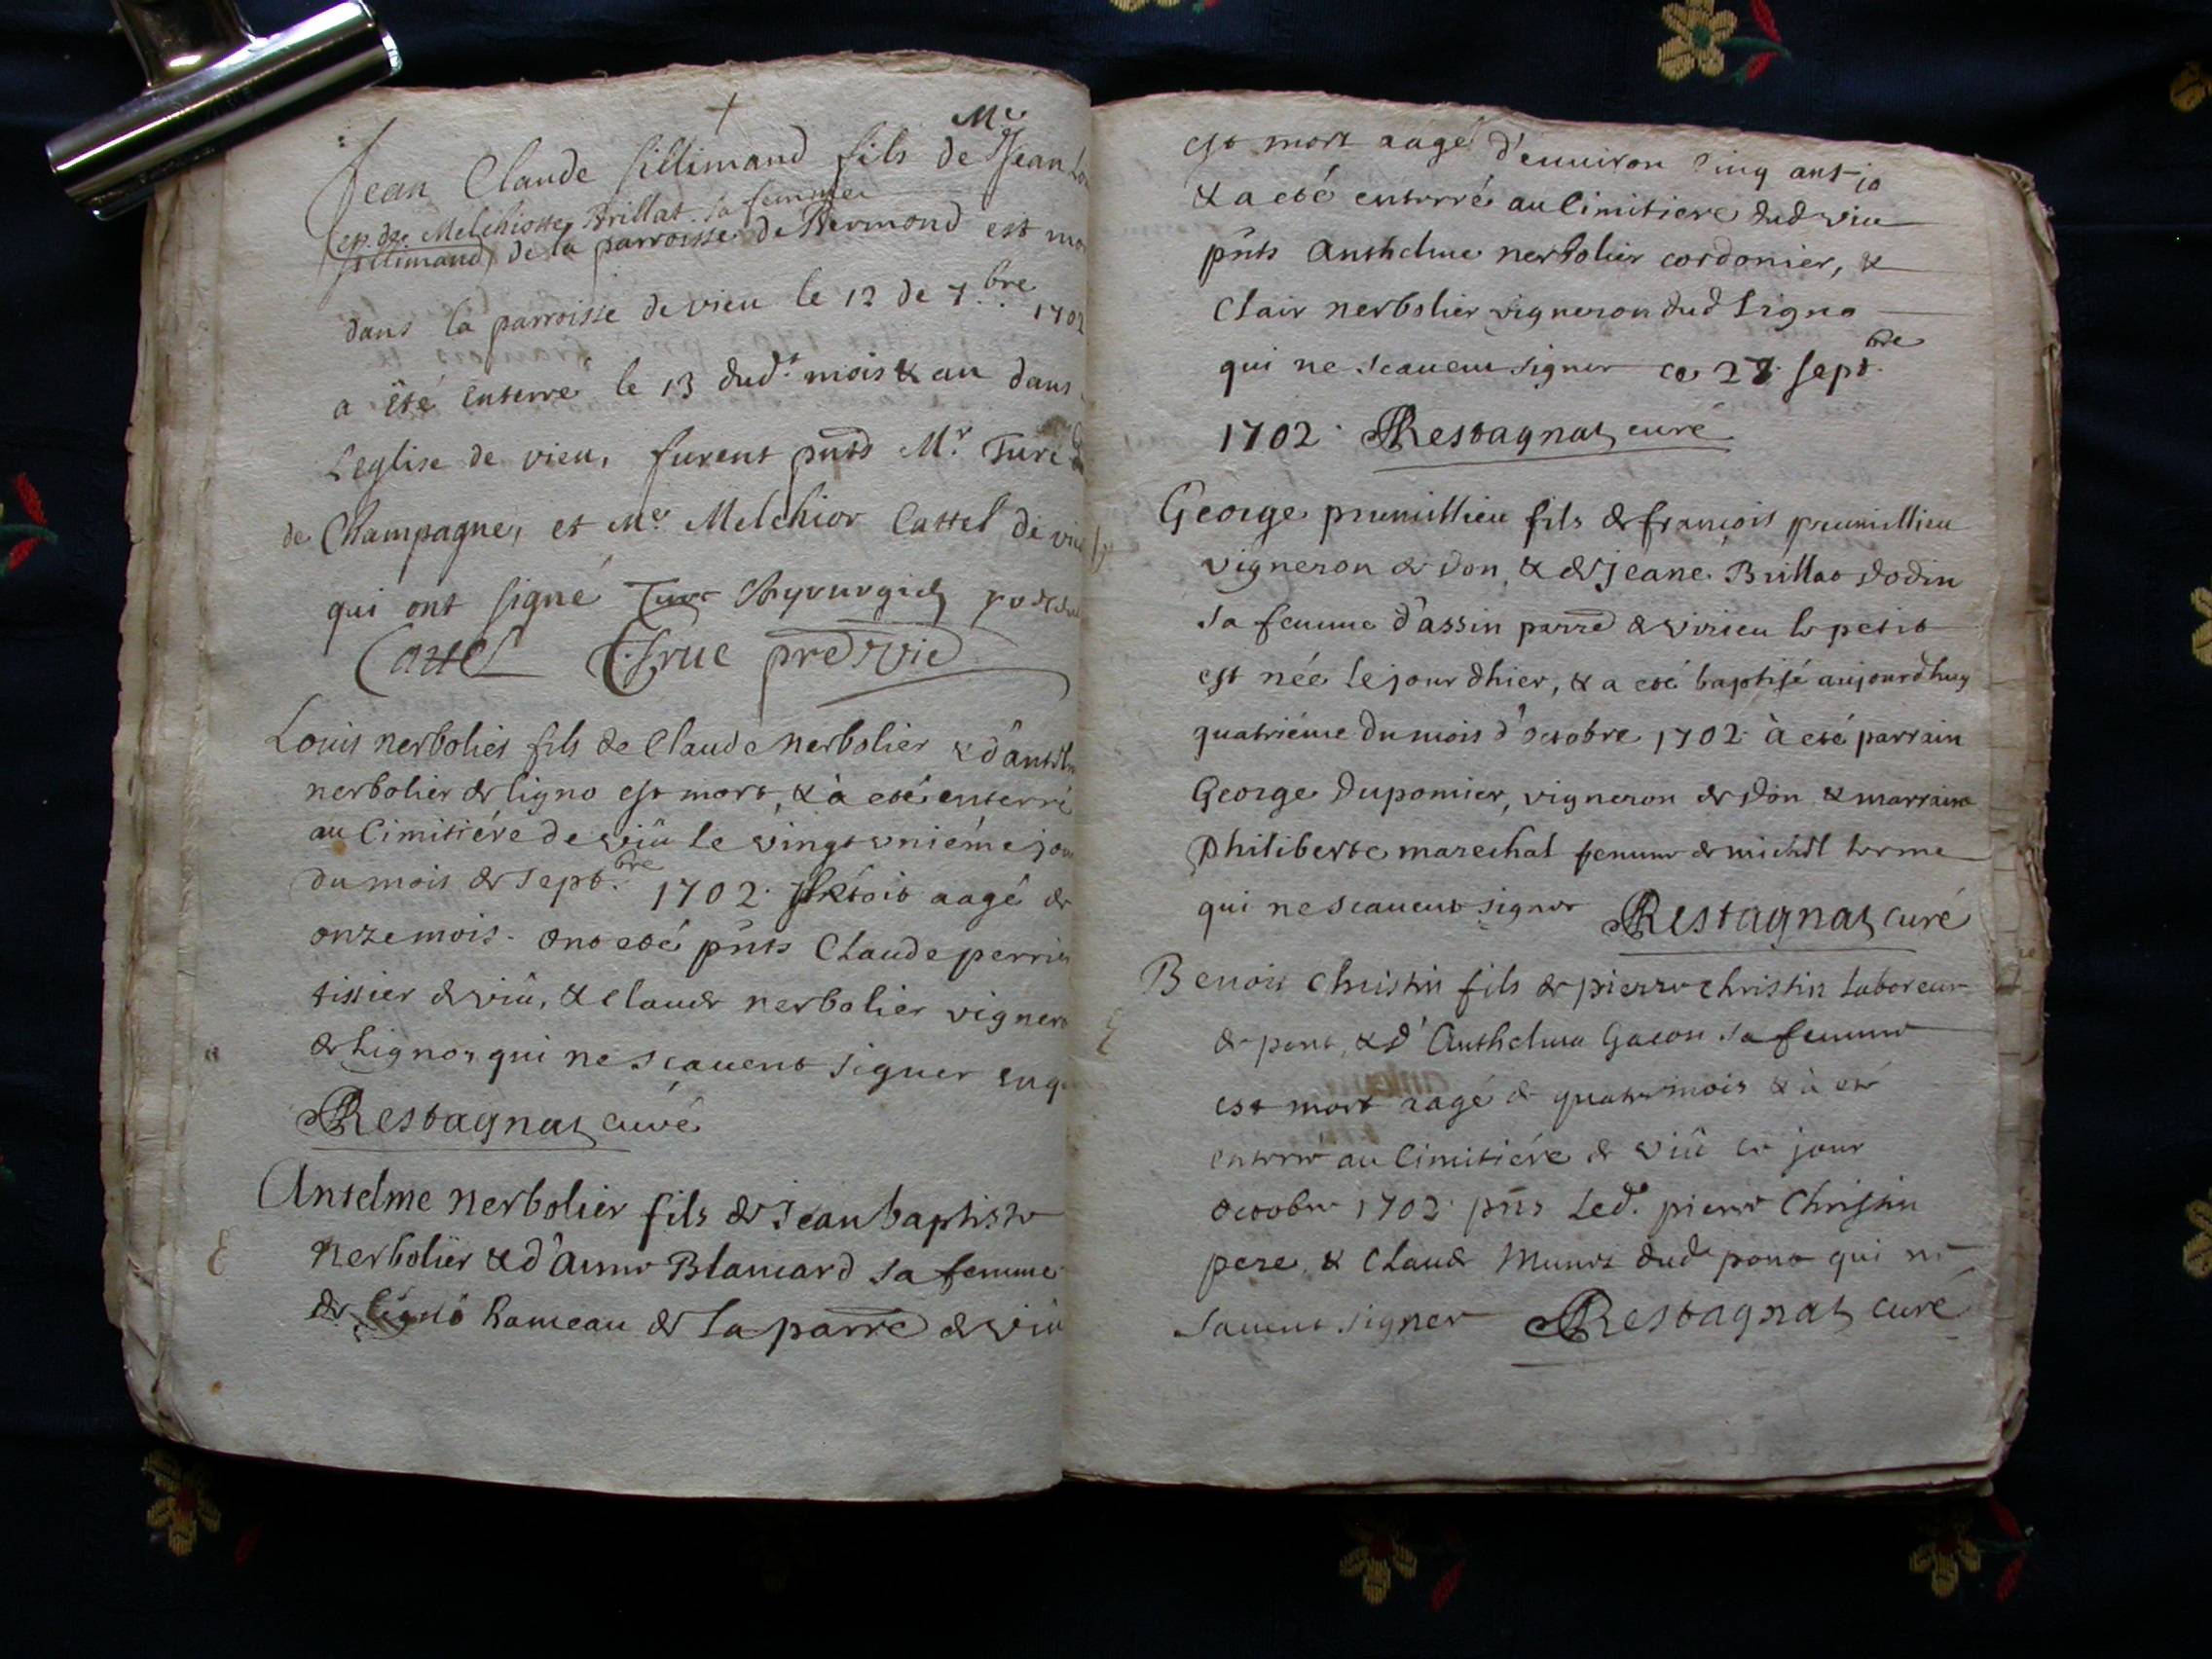 Jean Claude fillimand fils de Me Jean
et de Melchiotte Brillat sa femme
fillimand de la parroisse de Bermond est mo
dans la parroisse de vieu le 12 de 7.bre 1702
a été enterré le 13 dud.t mois & an dans
L'eglise de vieu, furent pnts Mr. Ture
de Champagne, et Mer. Melchior Cattel de vieu
qui ont signé Ture Chyrurgien
Cattel
Louis nerbolier fils de Claude nerbolier & d'anth
nerbolier de ligno est mort, & à eté enterré
au Cimitiére de viû le vingt vniéme jou
du mois de sept.bre 1702. Il étoit aagé de
onze mois. Ont eté pñts Claude perrin
tissier de viû, & claude nerbolier vignero
de Ligno, qui ne scauent signer enq
Restagnat curé
Anselme nerbolier fils de Jean baptiste
nerbolier & d'anne Blancard sa femme
de ligno hameau de la parre de viû
est mort aagé d'enuiron cinq ans
& a eté enterré au Cimitiere dud viu
pñts Anthelme nerbolier cordonier, &
Clair nerbolier vigneron dud Ligno
qui ne scauent signer ce 27 sept.bre
1702. Restagnat curé
George prumillieu fils de françois prumillieu
vigneron de Don, & de jeane Brillat dodin
sa femme d'assin parre de virieu le petit
est née le jour d'hier, & a eté baptisé aujourdhuy
quatriéme du mois d'octobre 1702. à eté parrain
George Duponier, vigneron de Don & marraine
Philiberte marechal femme de michel terme
qui ne scauent signer Restagnat curé
Benoit Christin fils de pierre christin laboreur
de pont, & d'Anthelma Gacon sa femme
est mort aagé de quatre mois & à eté
enterré au Cimitiére de viû ce jour
octobre 1702. pñts Led. pierre Christin
pere & Claude Munet dud pont qui ne
sauent signer Restagnat curé